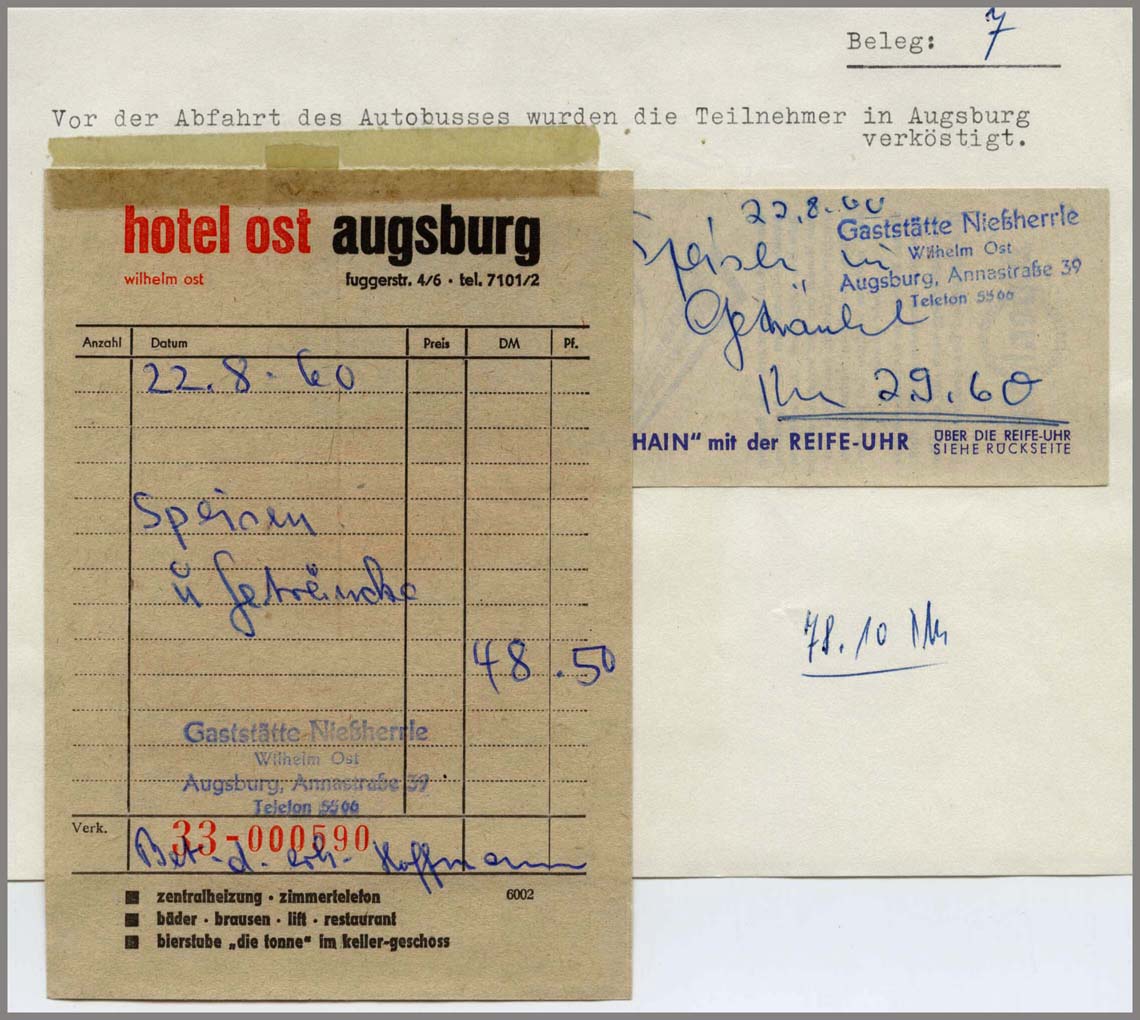 Beleg: 7
Vor der Abfahrt des Autobusses wurden die Teilnehmer in Augsburg
verköstigt.
hotel ost augsburg
wilhelm ost
fuggerstr. 4/6 · tel. 7101/2
Anzahl Datum Preis DM Pf.
22.8.60
Speisen
u Getränke
48.50
Gaststätte Nießherrle
Wilhelm Ost
Augsburg, Annastraße 39
Telefon 5566
Verk. 33-000590
Bet. d. erh. Hoffmann
zentralheizung · zimmertelefon 6002
bäder · brausen · lift · restaurant
bierstube „die tonne“ im keller-geschoss
22.8.60
Speisen u
Getränke
Gaststätte Nießherrle
Wilhelm Ost
Augsburg, Annastraße 39
Telefon 5566
29.60
HAIN“ mit der REIFE-UHR
ÜBER DIE REIFE-UHR
SIEHE RÜCKSEITE
78.10 DM